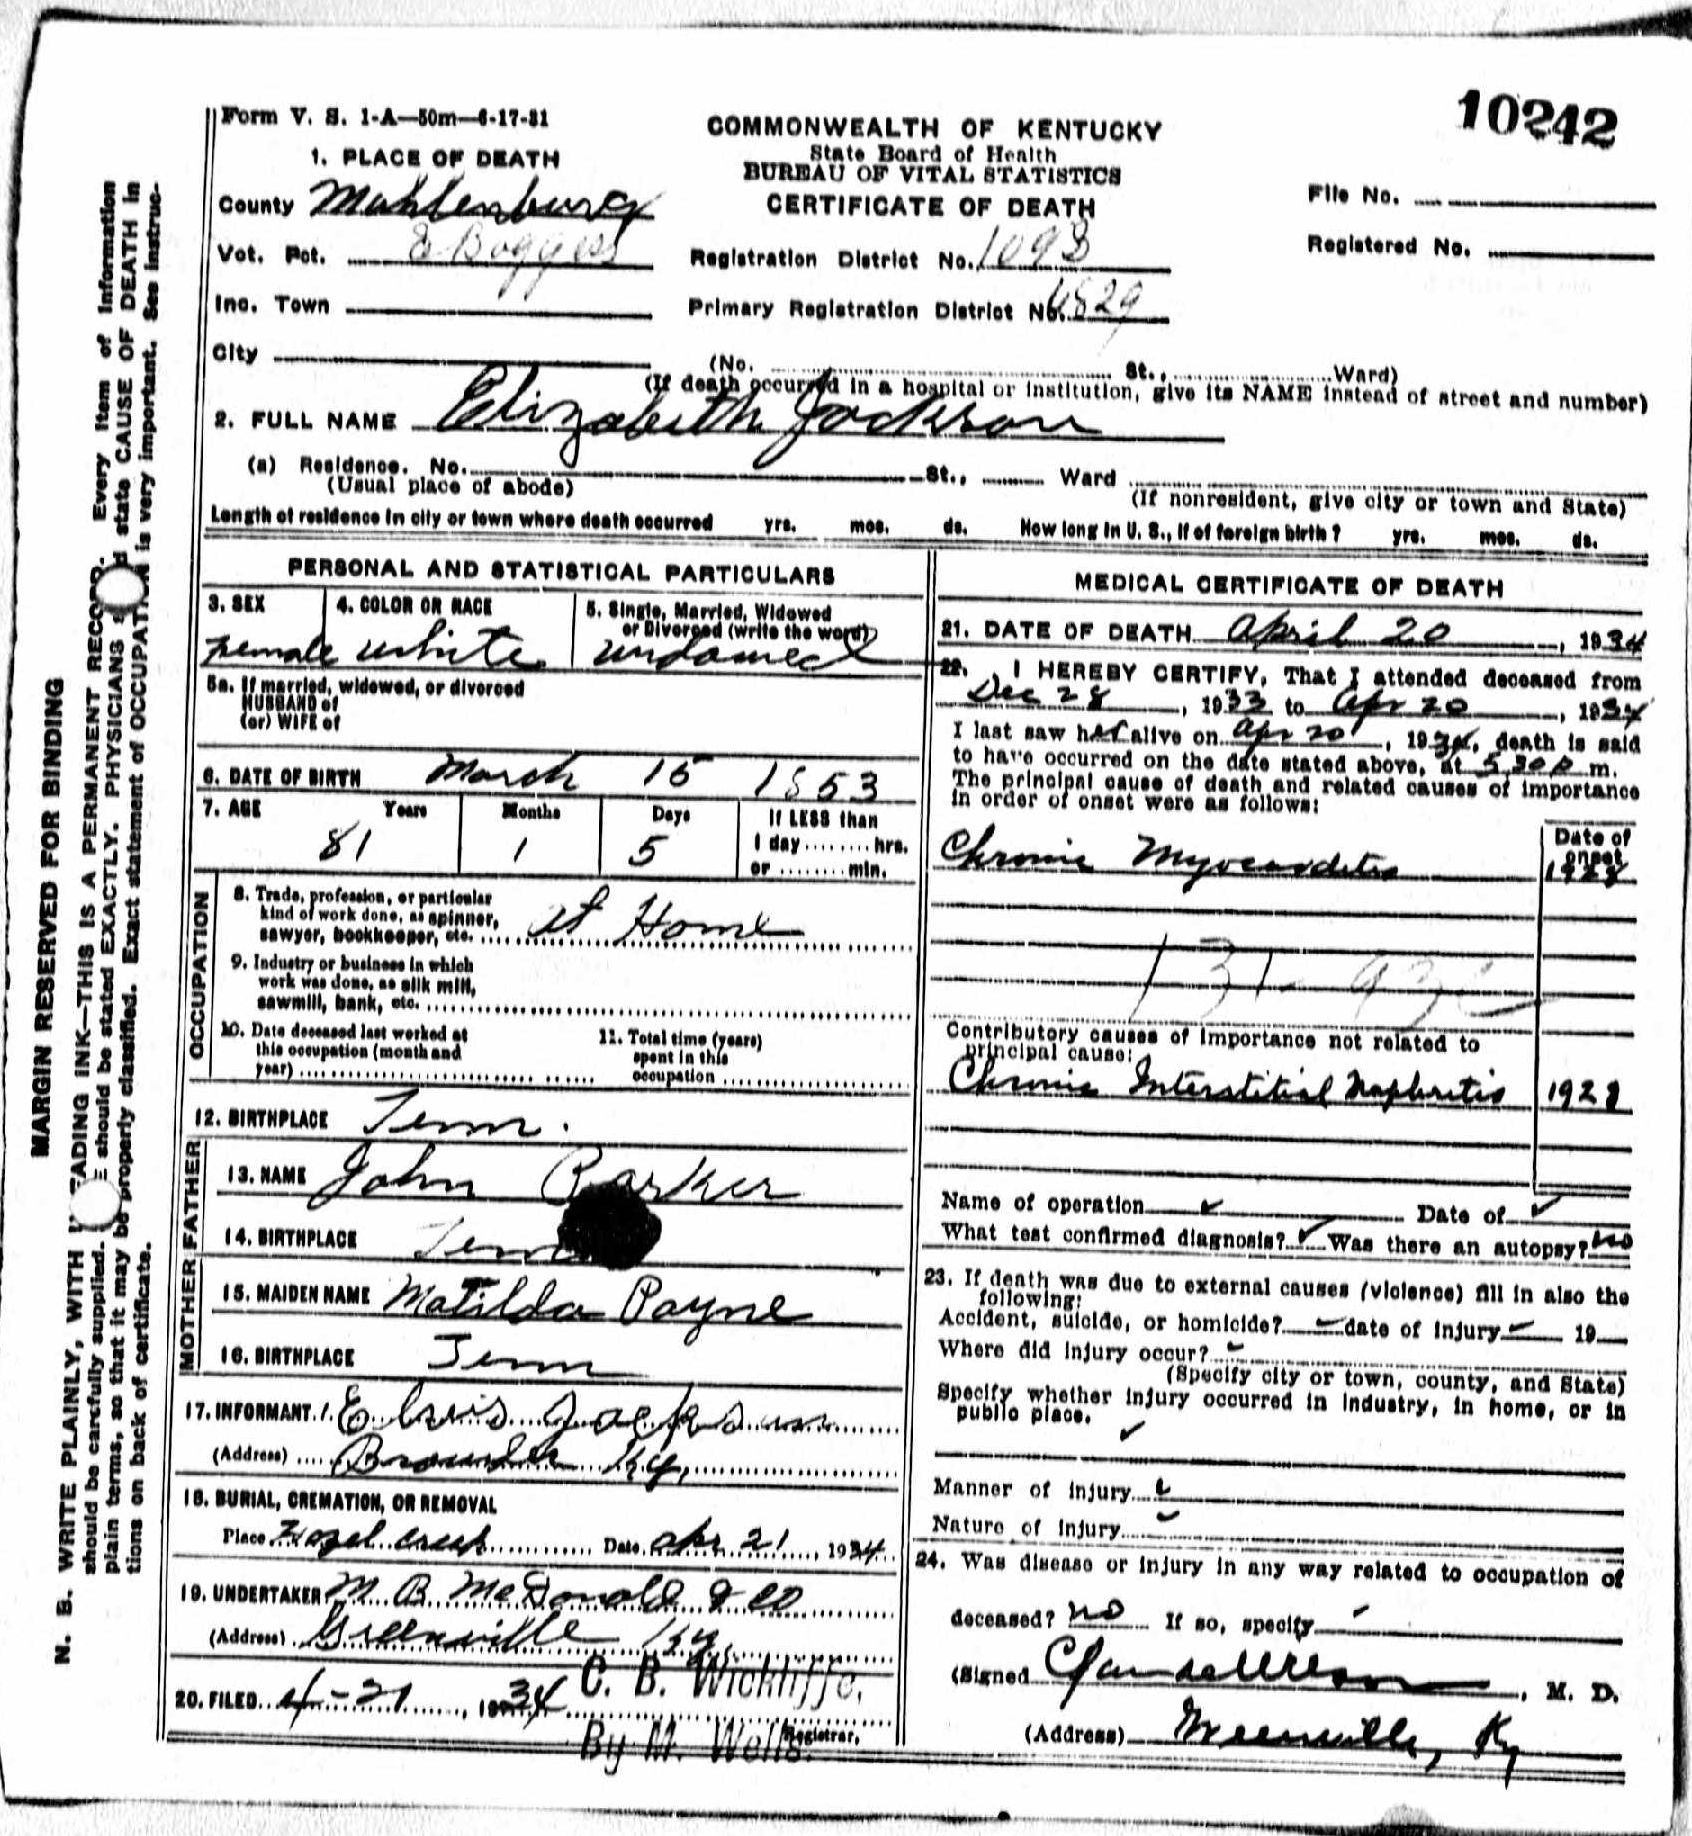 10242
Form V. S. 1-A—50m—6-17-31
COMMONWEALTH OF KENTUCKY
State Board of Health
BUREAU OF VITAL STATISTICS
CERTIFICATE OF DEATH
File No.
Registered No.
1. PLACE OF DEATH
County Muhlenburg
Vot. Pct. E Boggess
Registration District No. 1093
Inc. Town
Primary Registration District No. 6829
City (No. St., Ward)
(If death occurred in a hospital or institution, give its NAME instead of street and number)
2. FULL NAME Elizabeth Jackson
(a) Residence. No. St., Ward
(Usual place of abode)
(If nonresident, give city or town and State)
Length of residence in city or town where death occurred yrs. mos. ds. How long in U. S., if of foreign birth? yrs. mos. ds.
PERSONAL AND STATISTICAL PARTICULARS
3. SEX 4. COLOR OR RACE 5. Single, Married, Widowed
or Divorced (write the word)
Female white widowed
5a. If married, widowed, or divorced
HUSBAND of
(or) WIFE of
6. DATE OF BIRTH March 15 1853
7. AGE Years Months Days If LESS than
81 1 5 1 day ........ hrs.
or ........ min.
OCCUPATION
8. Trade, profession, or particular
kind of work done, as spinner,
sawyer, bookkeeper, etc. at Home
9. Industry or business in which
work was done, as silk mill,
sawmill, bank, etc.
10. Date deceased last worked at
this occupation (month and
year)
11. Total time (years)
spent in this
occupation
12. BIRTHPLACE Tenn.
FATHER
13. NAME John Barker
14. BIRTHPLACE Tenn
MOTHER
15. MAIDEN NAME Matilda Payne
16. BIRTHPLACE Tenn
17. INFORMANT Elvis Jackson
(Address) Browder Ky,
18. BURIAL, CREMATION, OR REMOVAL
Place Hazel Creek Date apr 21, 1934
19. UNDERTAKER M. B. McDonald & Co
(Address) Greenville Ky.
20. FILED 4-21, 1934 C. B. Wickliffe,
Registrar.
By M. Wells.
MEDICAL CERTIFICATE OF DEATH
21. DATE OF DEATH April 20, 1934
22. I HEREBY CERTIFY, That I attended deceased from
Dec 28, 1933 to Apr 20, 1934
I last saw her alive on apr 20, 1934, death is said
to have occurred on the date stated above, at 5.30 P m.
The principal cause of death and related causes of importance
in order of onset were as follows:
Date of
onset
Chronic Myocarditis 1928
131-93c
Contributory causes of importance not related to
principal cause:
Chronic Interstitial Nephritis 1928
Name of operation ✓ Date of ✓
What test confirmed diagnosis? ✓ Was there an autopsy? no
23. If death was due to external causes (violence) fill in also the
following:
Accident, suicide, or homicide? ✓ date of injury ✓ 19
Where did injury occur? ✓
(Specify city or town, county, and State)
Specify whether injury occurred in industry, in home, or in
public place.
✓
Manner of injury ✓
Nature of injury ✓
24. Was disease or injury in any way related to occupation of
deceased? no If so, specify ✓
(Signed Claude Wilson, M. D.
(Address) Greenville, Ky
MARGIN RESERVED FOR BINDING
N. B. WRITE PLAINLY, WITH UNFADING INK—THIS IS A PERMANENT RECORD. Every item of information
should be carefully supplied. should be stated EXACTLY. PHYSICIANS state CAUSE OF DEATH in
plain terms, so that it may be properly classified. Exact statement of OCCUPATION is very important. See instruc-
tions on back of certificate.